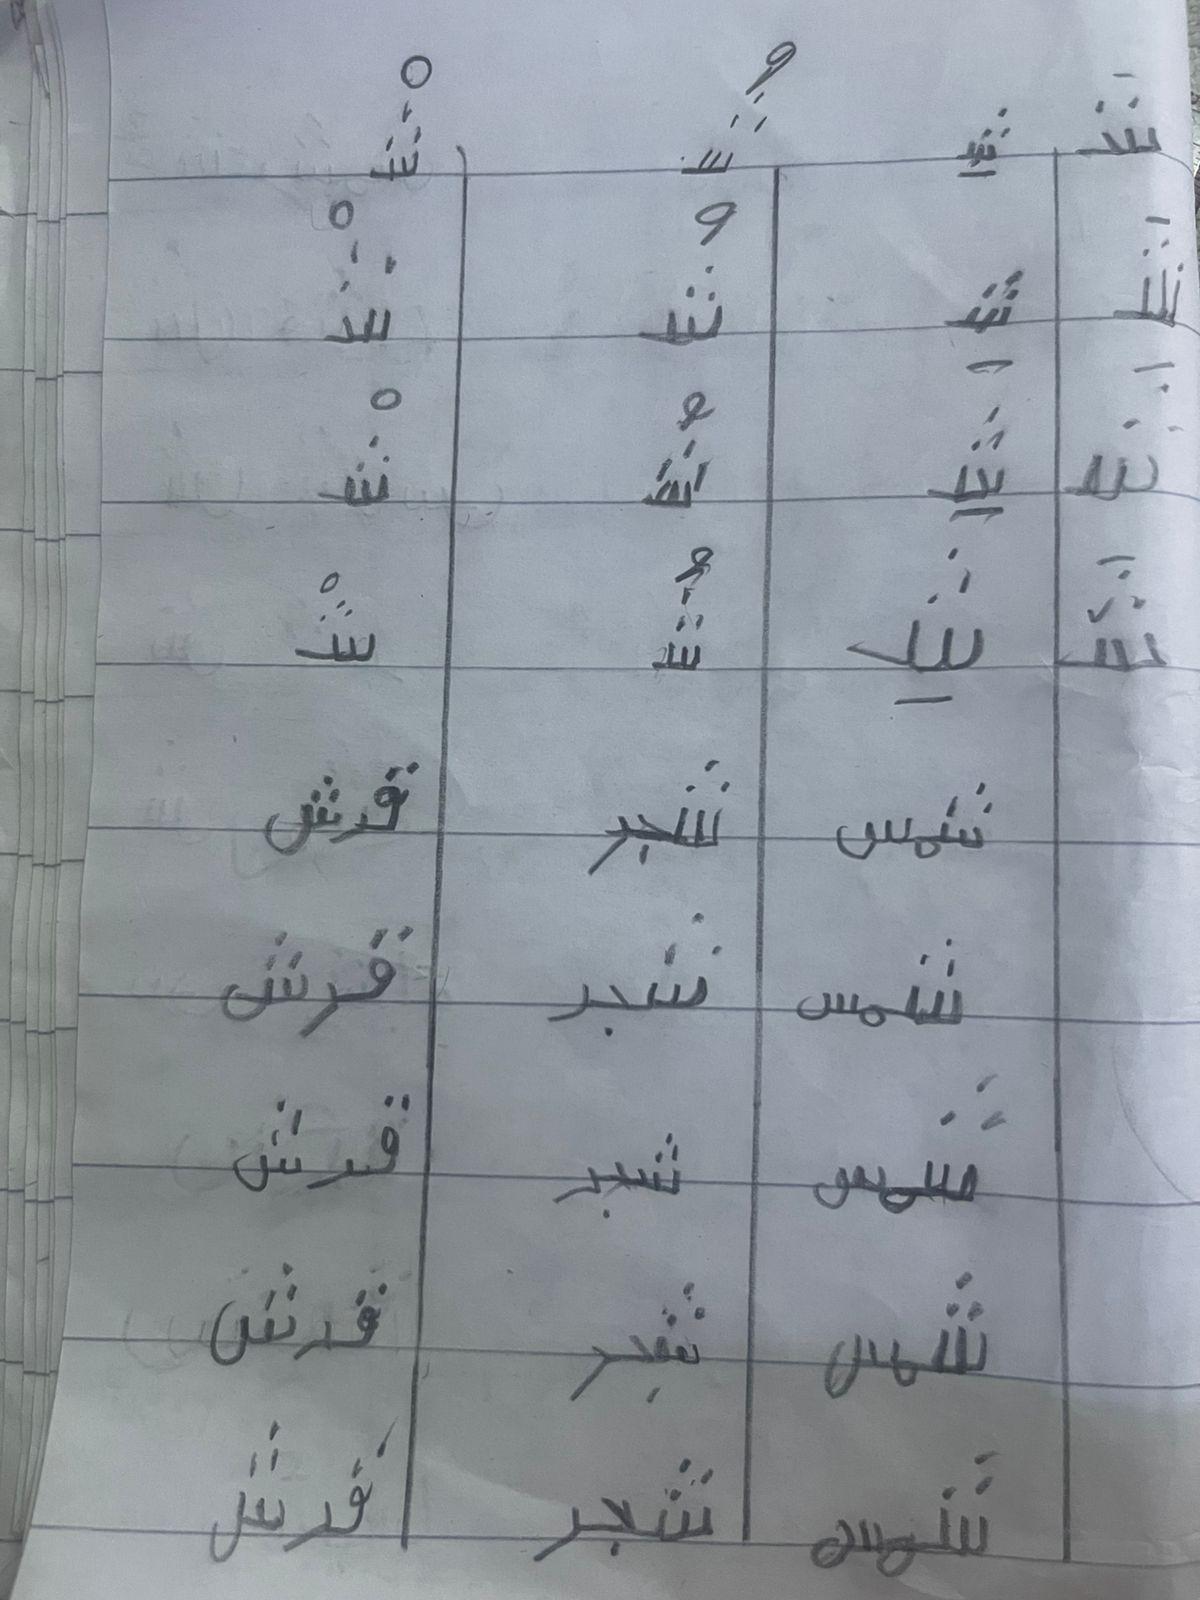 شَ شِ شُ شْ
شَ شِ شُ شْ
شَ شِ شُ شْ
شَ شِ شُ شْ
شمس شجر قرش
شمس شجر قرش
شمس شجر قرش
شمس شجر قرش
شمس شجر قرش